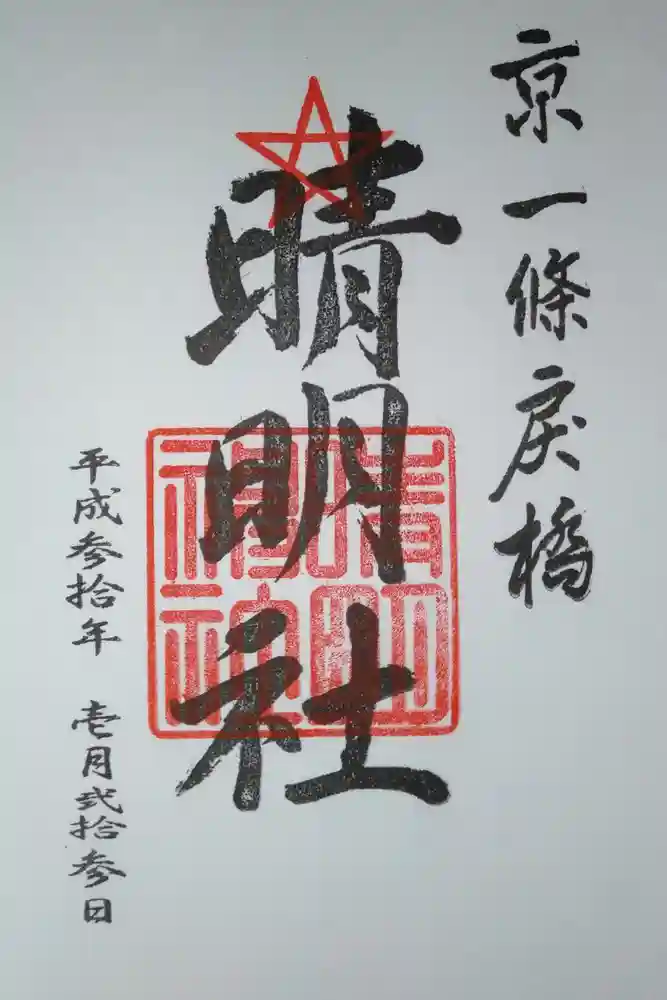 京一條戻橋
晴明社
晴明
神社
平成参拾年 壱月弐拾参日